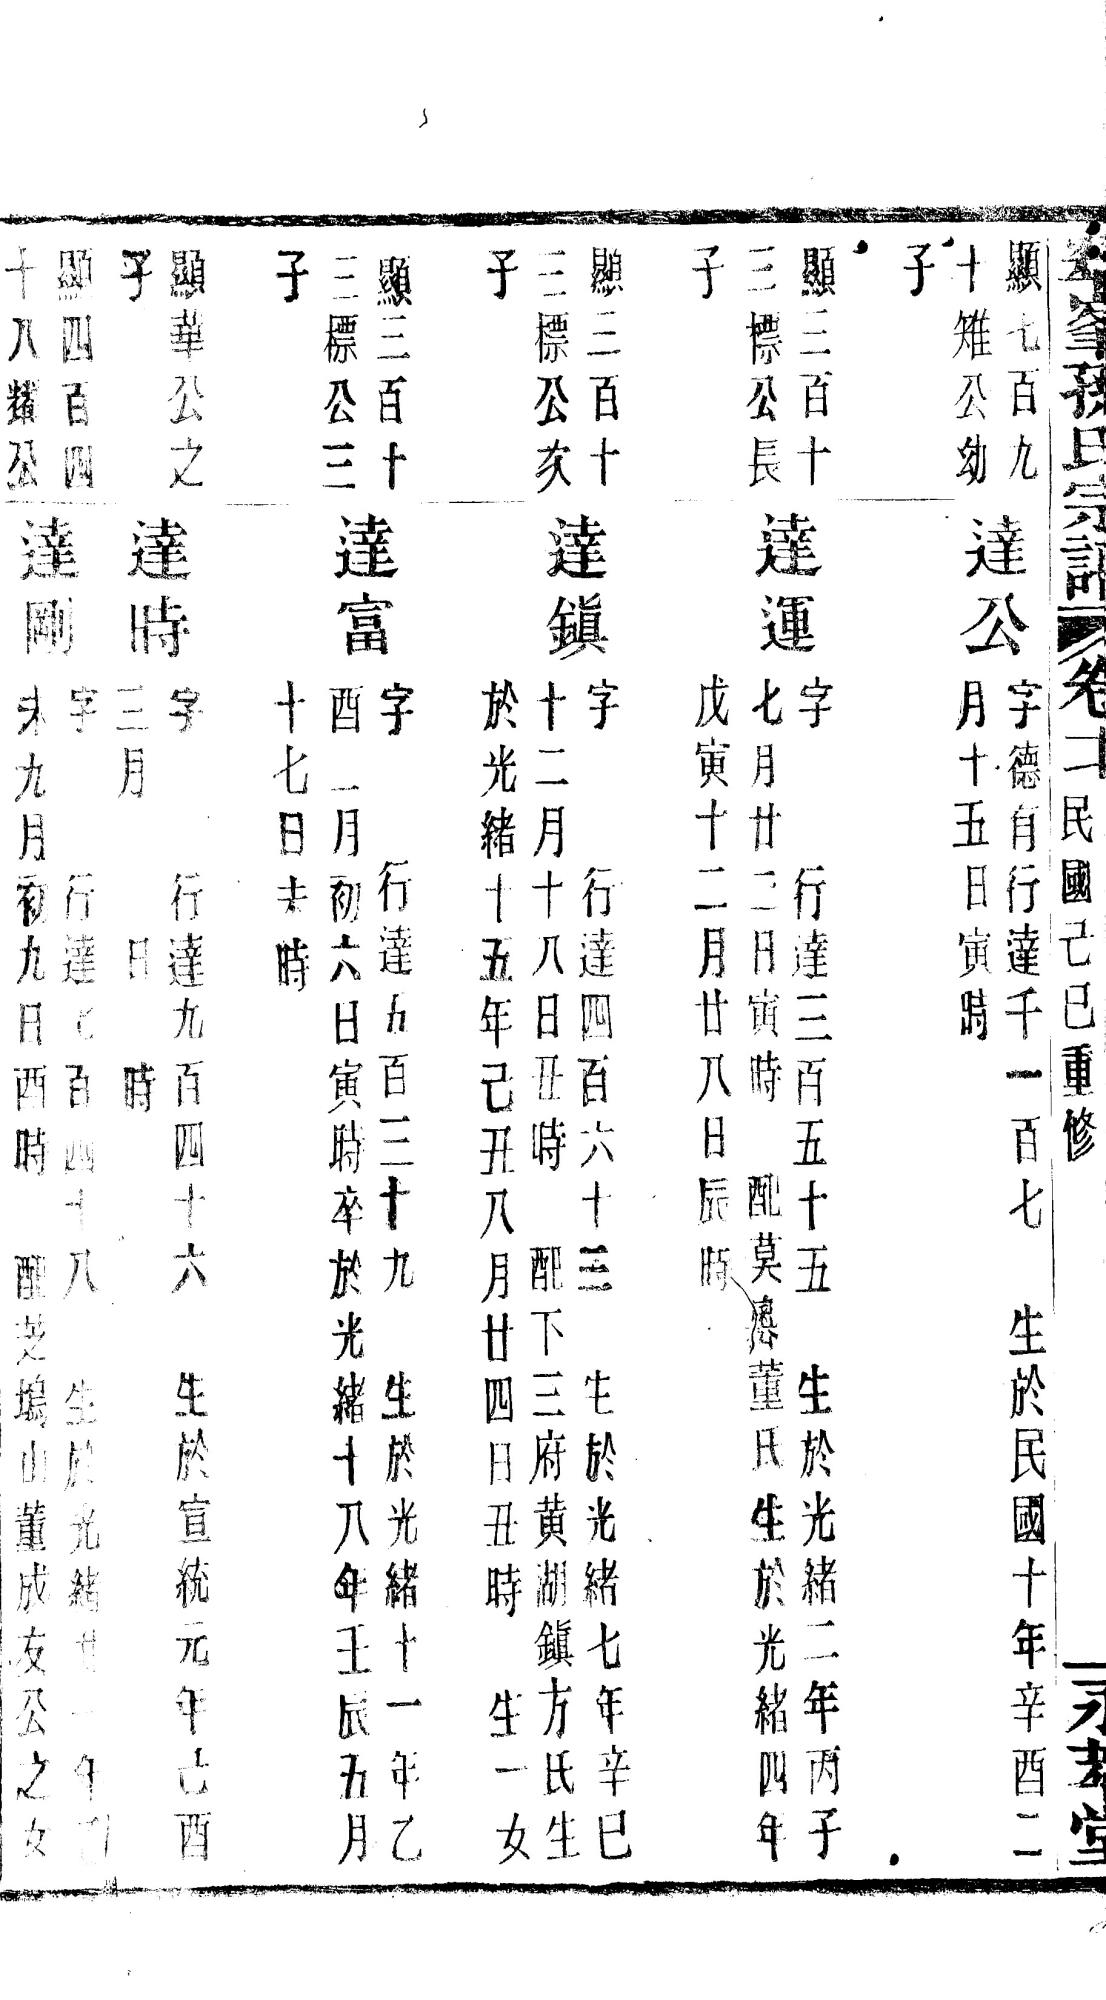 峯孫氏宗譜
卷
民國己巳重修
永孝堂
顯七百九
十雉公幼
子
達公
字德有行達千一百七 生於民國十年辛酉二
月十五日寅時
顯三百十
三標公長
子
達運
字 行達三百五十五 生於光緒二年丙子
七月廿二日寅時 配莫塢董氏生於光緒四年
戊寅十二月廿八日辰時
顯三百十
三標公次
子
達鎮
字 行達四百六十三 生於光緒七年辛巳
十二月十八日丑時 配下三府黃湖鎮方氏生
於光緒十五年己丑八月廿四日丑時 生一女
顯三百十
三標公三
子
達富
字 行達五百三十九 生於光緒十一年乙
酉 一月初六日寅時卒於光緒十八年壬辰五月
十七日未時
顯華公之
子
達時
字 行達九百四十六 生於宣統元年己酉
三月 日 時
顯四百四
十八 公
達剛
字 行達七百四十八 生於光緒廿一年乙
未九月初九日酉時 配芝塢山董成友公之女